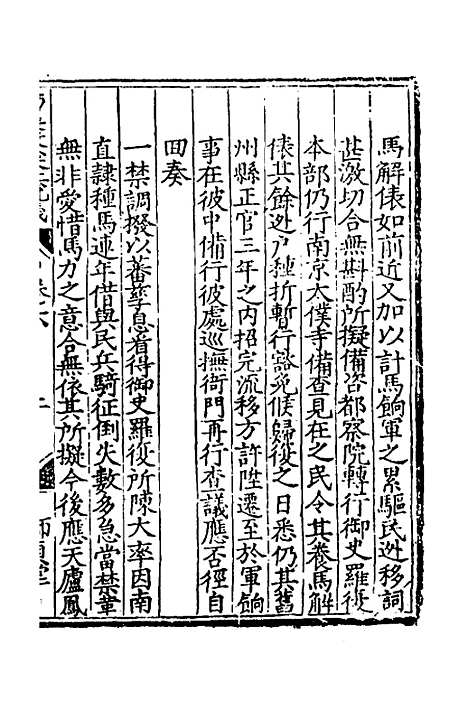 馬解俵如前近又加以計馬餉軍之累驅民迯移詞
甚激切合無斟酌所擬備咨都察院轉行御史羅復
本部仍行南京太僕寺備查見在之民令其養馬解
俵其餘迯户種折暫行豁免候歸復之日悉仍其舊
州縣正官三年之内招完流移方許陞遷至於軍餉
事在彼中備行彼處巡撫衙門再行查議應否徑自
回奏
一禁調撥以蕃孳息看得御史羅復所陳大率因南
直隷種馬連年借與民兵騎征倒失數多急當禁革
無非愛惜馬力之意合無依其所擬今後應天廬鳳
卷六
二